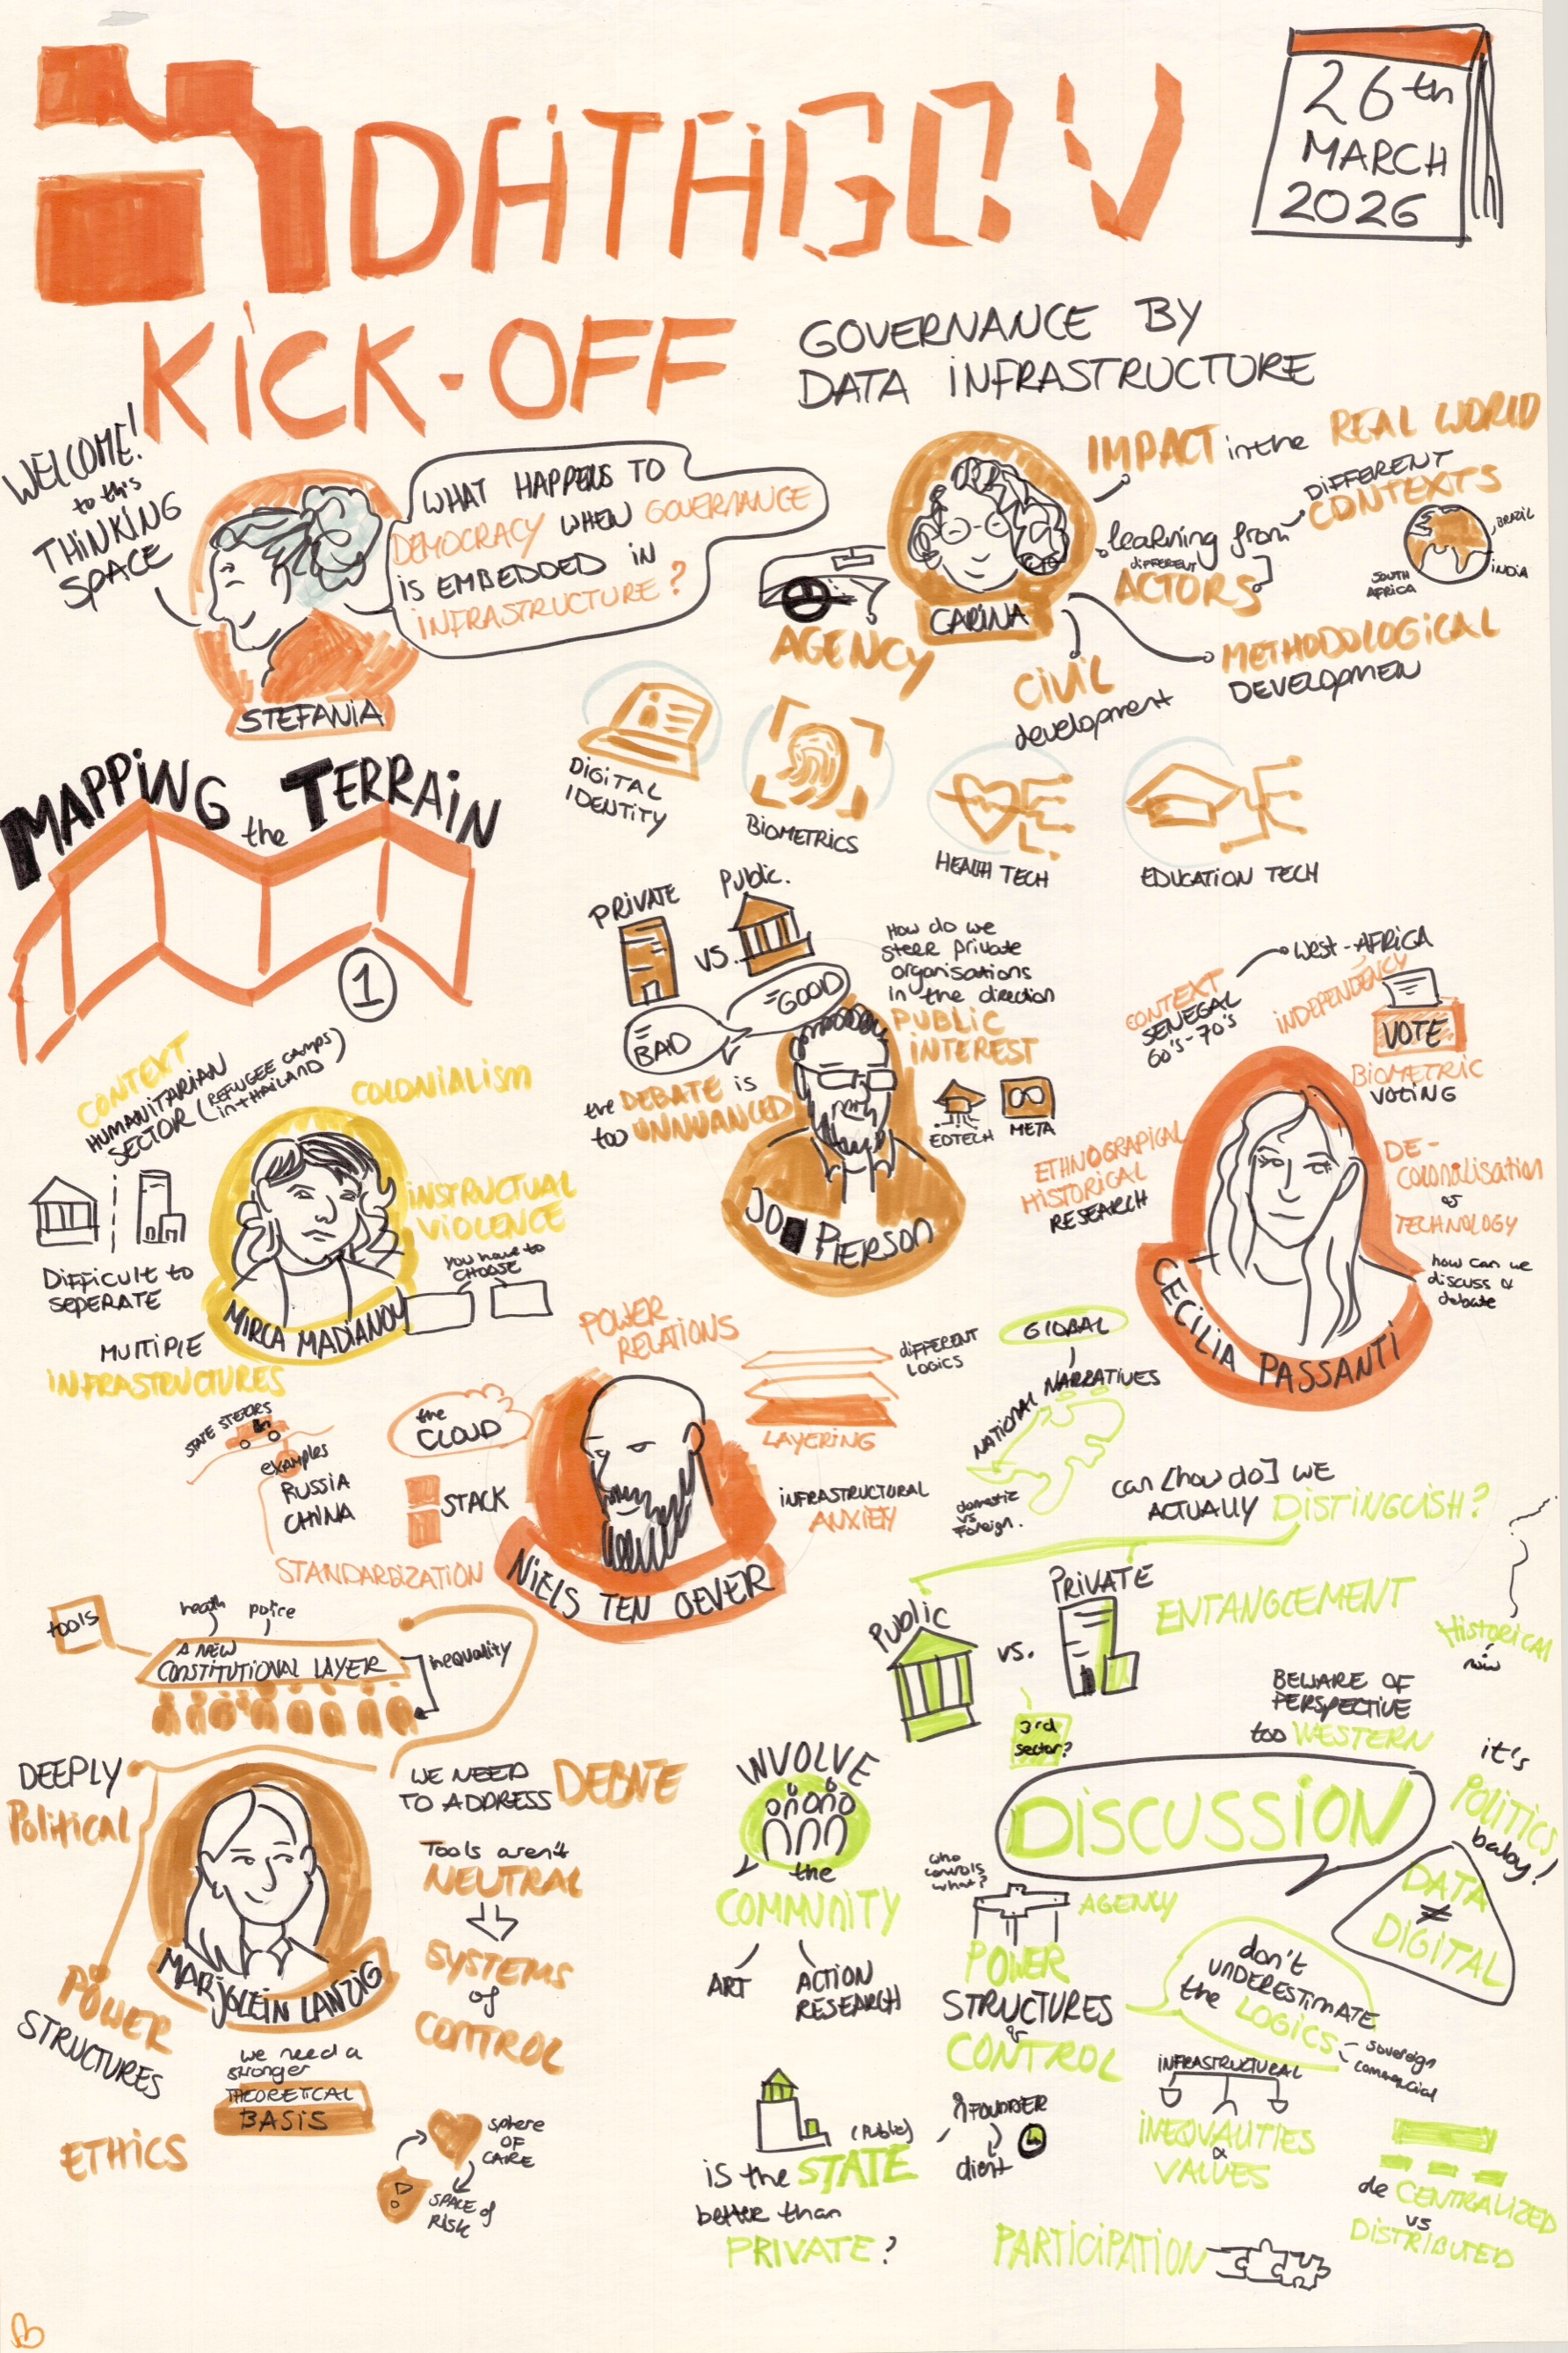 DATAGOV
26th
MARCH
2026
KICK-OFF
GOVERNANCE BY
DATA INFRASTRUCTURE
WELCOME!
to this
THINKING
SPACE
WHAT HAPPENS TO
DEMOCRACY WHEN GOVERNANCE
IS EMBEDDED IN
INFRASTRUCTURE?
STEFANIA
CARINA
IMPACT in the REAL WORLD
learning from
DIFFERENT
CONTEXTS
BRAZIL
INDIA
SOUTH
AFRICA
DIFFERENT
ACTORS
AGENCY
CIVIL
development
METHODOLOGICAL
DEVELOPMEN
DIGITAL
IDENTITY
BIOMETRICS
HEALTH TECH
EDUCATION TECH
MAPPING
the TERRAIN
1
CONTEXT
HUMANITARIAN
SECTOR (REFUGEE CAMPS
in THAILAND)
COLONIALISM
INSTRUCTUAL
VIOLENCE
you have to
CHOOSE
DIFFICULT to
SEPERATE
MULTIPLE
INFRASTRUCTURES
MIRCA MADIANOU
PRIVATE
VS.
Public.
=GOOD
=BAD
the DEBATE is
too UNNUANCED
How do we
steer private
organisations
in the direction
PUBLIC
INTEREST
EDTECH
META
JO PIERSON
CONTEXT
SENEGAL
60's-70's
West-AFRICA
INDEPENDENCY
VOTE
BIOMETRIC
VOTING
ETHNOGRAPICAL
HISTORICAL
RESEARCH
DE-
COLONALISATION
of
TECHNOLOGY
how can we
discuss &
debate
CECILIA PASSANTI
POWER
RELATIONS
different
LOGICS
LAYERING
INFRASTRUCTURAL
ANXIETY
the
CLOUD
STACK
STANDARDIZATION
STATE STEERS
examples
RUSSIA
CHINA
NIELS TEN OEVER
GLOBAL
NATIONAL NARRATIVES
domestic
vs
foreign.
can [how do] WE
ACTUALLY DISTINGUISH?
Public
vs.
PRIVATE
3rd
sector?
ENTANGLEMENT
Historical
now
BEWARE OF
PERSPECTIVE
too WESTERN
tools
health
police
A NEW
CONSTITUTIONAL LAYER
inequality
DEEPLY
Political
POWER
STRUCTURES
ETHICS
MARJOLEIN LANZIG
WE NEED
TO ADDRESS DEBATE
Tools aren't
NEUTRAL
SYSTEMS
of
CONTROL
we need a
stronger
THEORETICAL
BASIS
sphere
OF
CARE
SPACE of
RISK
DISCUSSION
it's
POLITICS
baby!
DATA
≠
DIGITAL
INVOLVE
the
COMMUNITY
ART
ACTION
RESEARCH
who
controls
what?
AGENCY
POWER
STRUCTURES
&
CONTROL
don't
UNDERESTIMATE
the LOGICS
sovereign
commercial
INFRASTRUCTURAL
INEQUALITIES
&
VALUES
(Public)
is the STATE
better than
PRIVATE?
FOUNDER
client
de CENTRALIZED
vs
DISTRIBUTED
PARTICIPATION